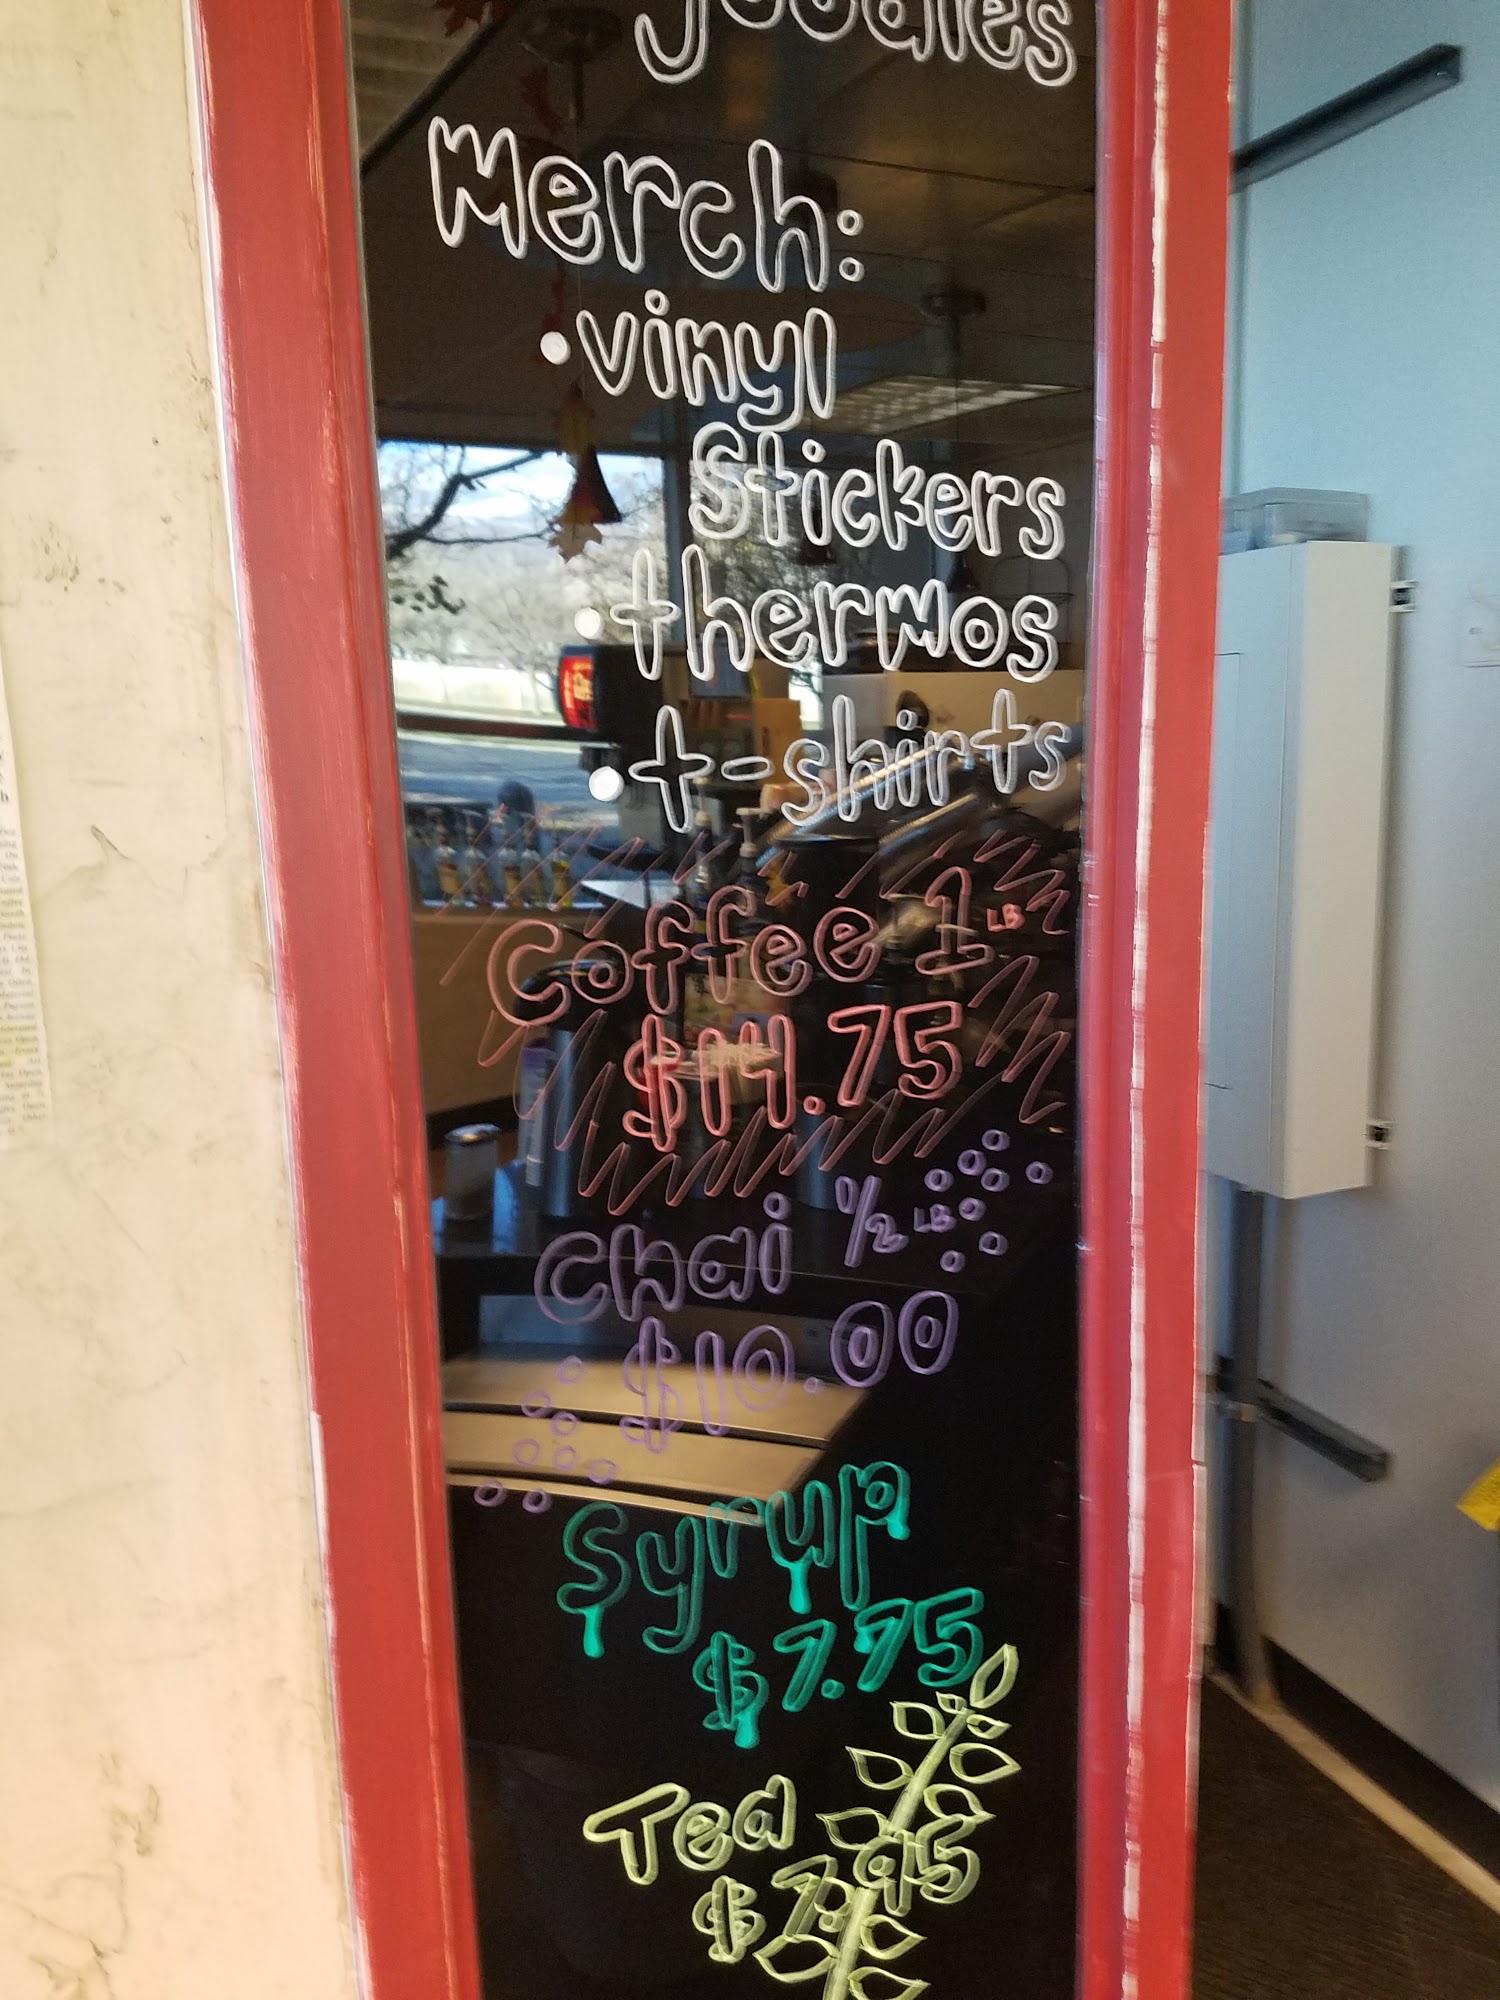 goodies
Merch:
• vinyl
Stickers
• thermos
• t-shirts
Coffee 1 LB
$14.75
Chai 1/2 LB
$10.00
Syrup
$7.75
Tea
$7.95